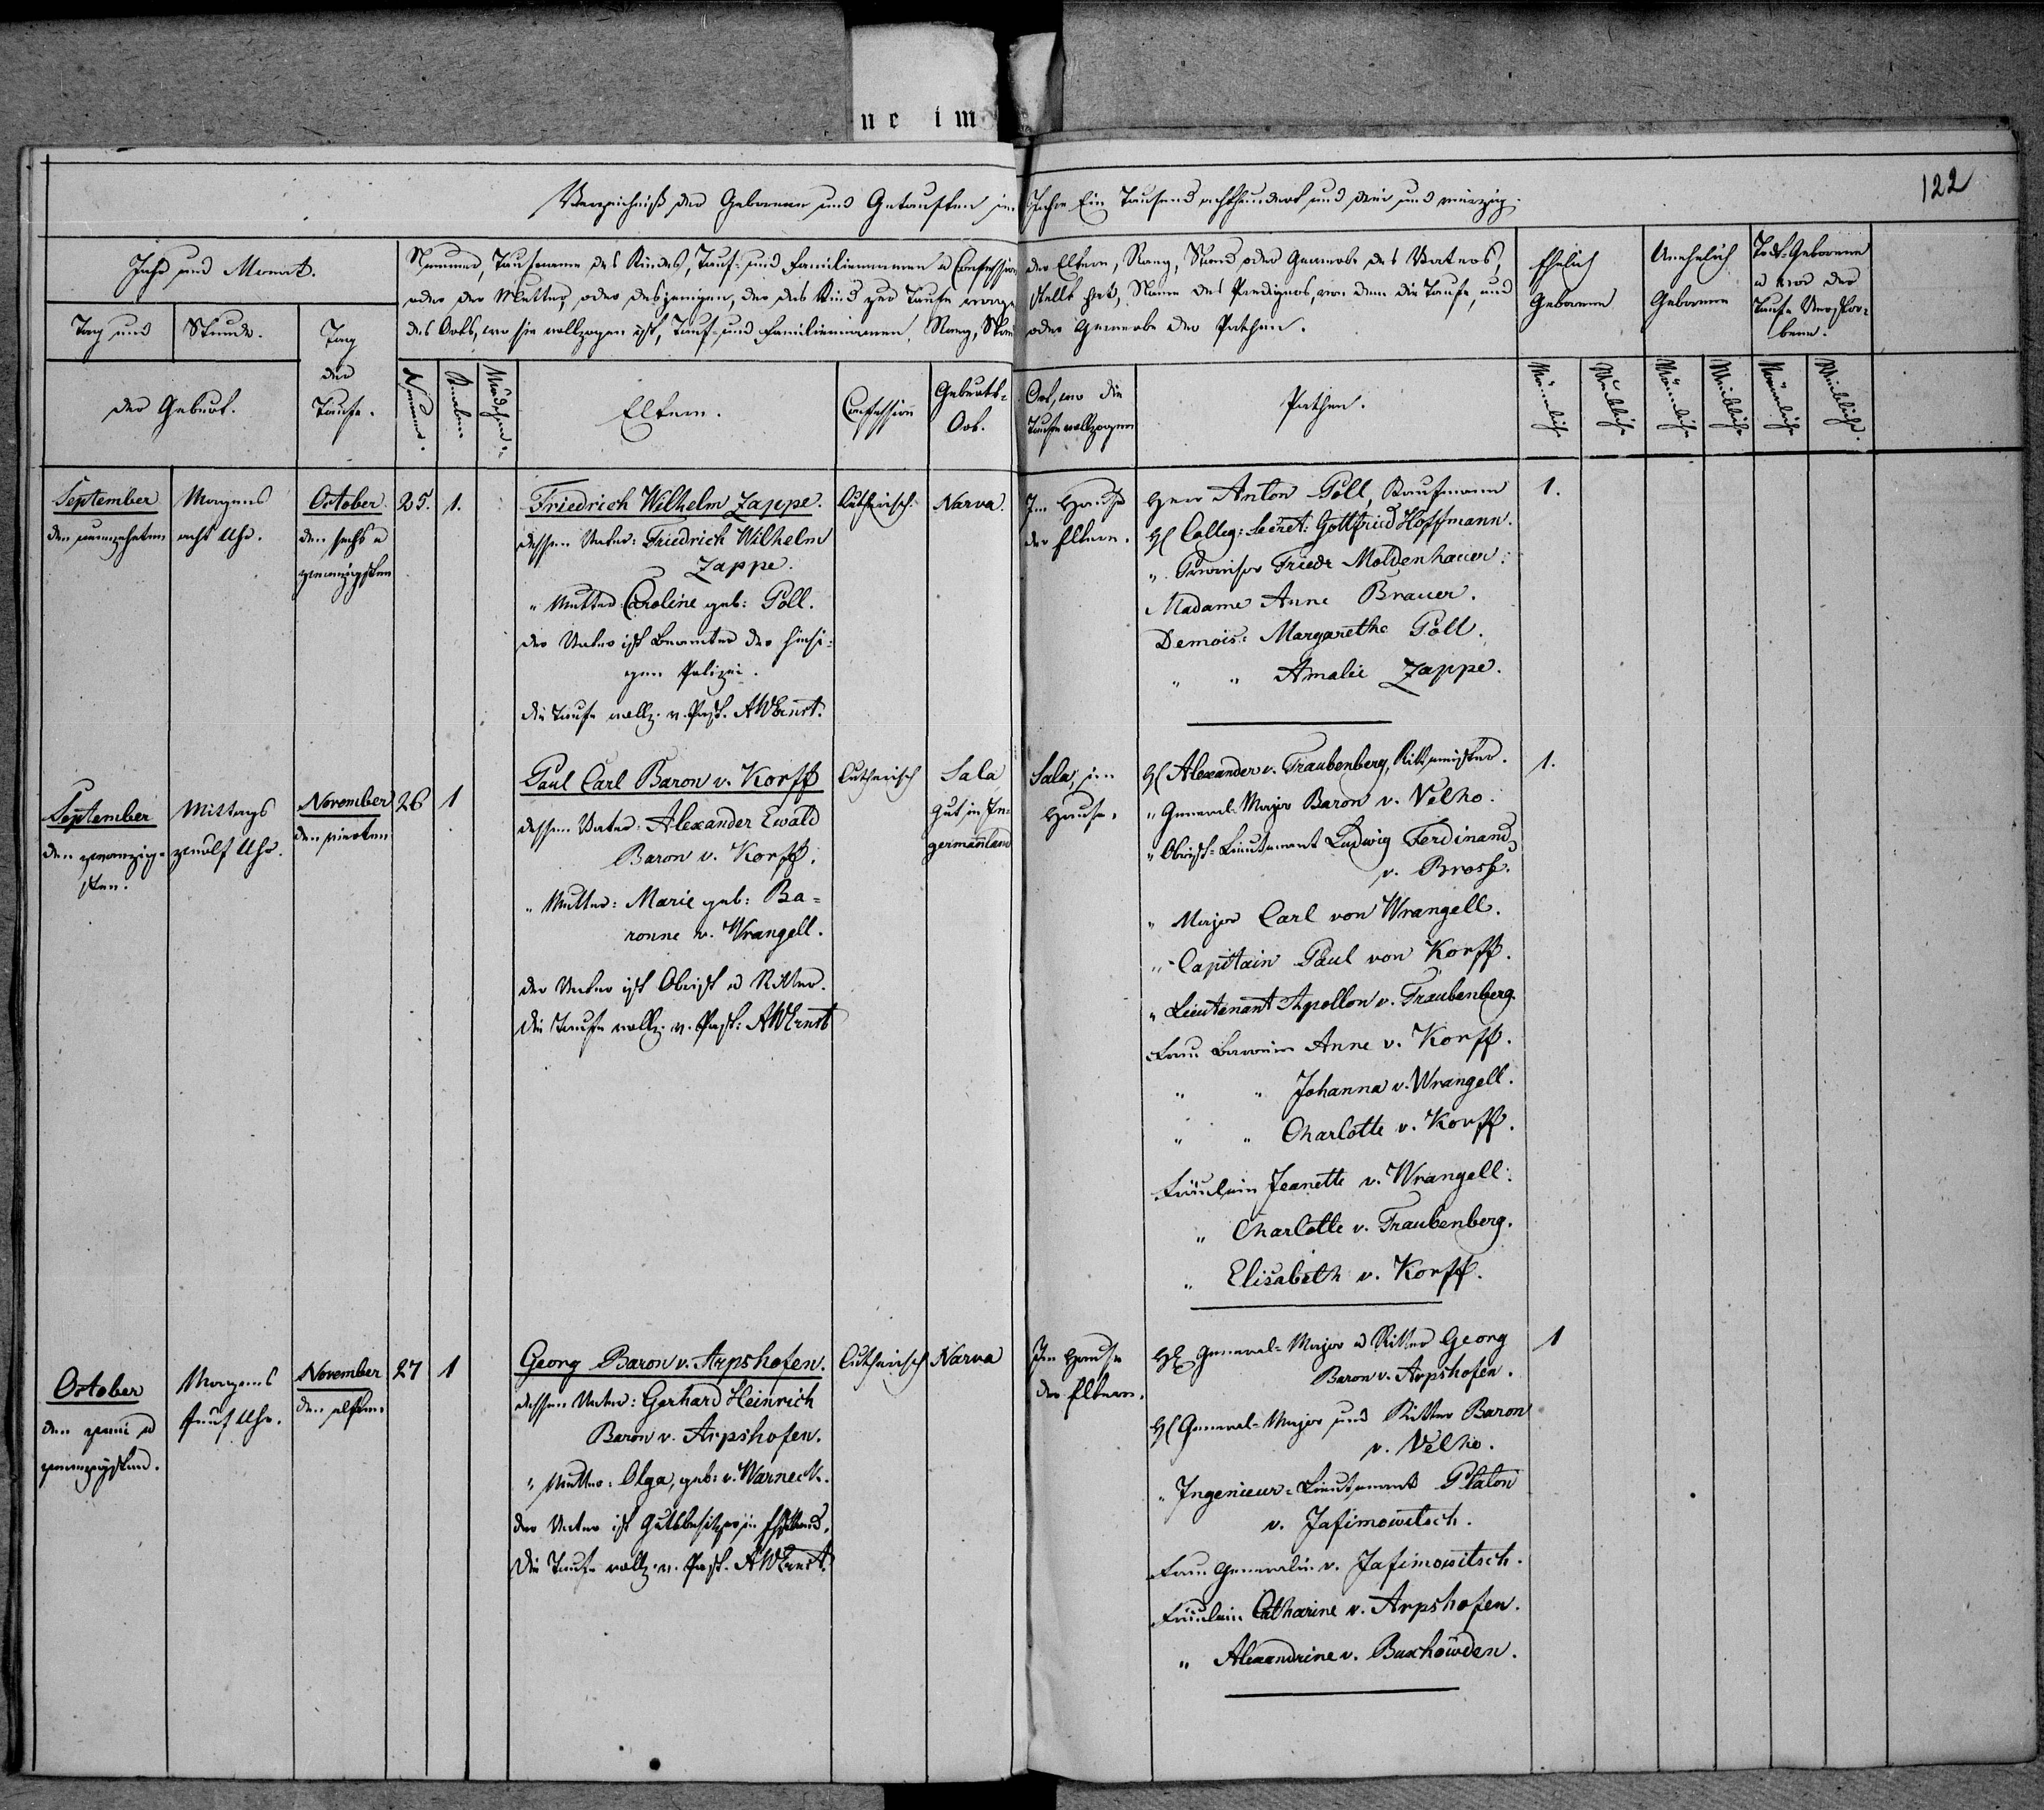 ne im
122
Verzeichniß der Geborenen und Getauften im Jahre Ein Tausend achthundert und drei und vierzig.
Jahr und Monat.
Tag und
Stunde.
der Geburt.
Tag
der
Taufe.
Nummer, Taufname des Kindes, Tauf- und Familiennamen u Confession der Eltern, Rang, Stand oder Gewerbe des Vaters,
oder der Mutter, oder desjenigen, der das Kind zur Taufe vorgestellt hat, Name des Predigers, von dem die Taufe, und
des Orts, wo sie vollzogen ist, Tauf- und Familiennamen, Rang, Stand oder Gewerbe der Pathen.
Nummer.
Knaben
Mädchen
Eltern.
Confession
Geburts-
Ort.
Ort, wo die
Taufe vollzogen
Pathen.
Ehelich
Geborene
Unehelich
Geborene
Todt-Geborene
u vor der
Taufe Verstor-
bene.
Männliche
Weibliche
Männliche
Weibliche
Männliche
Weibliche.
September
den neunzehnten
Morgens
acht Uhr.
October
den sechs u
zwanzigsten
25.
1.
Friedrich Wilhelm Zappe.
dessen Vater: Friedrich Wilhelm
Zappe.
" Mutter: Caroline geb: Poll.
der Vater ist Beamter der hiesi-
gen Polizei.
die Taufe vollz. v. Past. AWErnst.
Lutherisch.
Narva.
Im Hause
der Eltern.
Herr Anton Poll, Kaufmann
H Colleg: Secret: Gottfried Hoffmann.
" Provisor Friedr Moldenhauer.
Madame Anne Brauer.
Demois: Margarethe Poll.
" " Amalie Zappe.
1.
September
den zwanzig-
sten.
Mittags
zwölf Uhr.
November
den vierten
26
1
Paul Carl Baron v. Korff
dessen Vater: Alexander Ewald
Baron v. Korff.
" Mutter: Marie geb: Ba-
ronne v. Wrangell.
der Vater ist Obrist u Ritter.
die Taufe vollz. v. Past: AWErnst
Lutherisch
Sala
Gut in In-
germanland
Sala, im
Hause.
H Alexander v. Traubenberg, Rittmeister.
" General-Major Baron v. Velho.
" Obrist-Lieutenant Ludwig Ferdinand
v. Brosse.
" Major Carl von Wrangell.
" Capitain Paul von Korff.
" Lieutenant Apollon v. Traubenberg.
Frau Baronin Anne v. Korff.
" " Johanna v. Wrangell.
" " Charlotte v. Korff.
Fräulein Jeanette v. Wrangell.
" Charlotte v. Traubenberg.
" Elisabeth v. Korff.
1.
October
den zwei u
zwanzigsten.
Morgens
fünf Uhr.
November
den elften
27
1
Georg Baron v. Arpshofen.
dessen Vater: Gerhard Heinrich
Baron v. Arpshofen.
" Mutter: Olga, geb: v. Warneck.
der Vater ist Gutsbesitzer in Ehstland.
die Taufe vollz. v. Past. AWErnst.
Lutherisch
Narva
Im Hause
der Eltern.
H General-Major u Ritter Georg
Baron v. Arpshofen.
H General-Major und Ritter Baron
v. Velho.
" Ingenieur-Lieutenant Platon
v. Jafimowitsch.
Frau Generalin v. Jafimowitsch.
Fräulein Catharine v. Arpshofen.
" Alexandrine v. Buxhöwden.
1